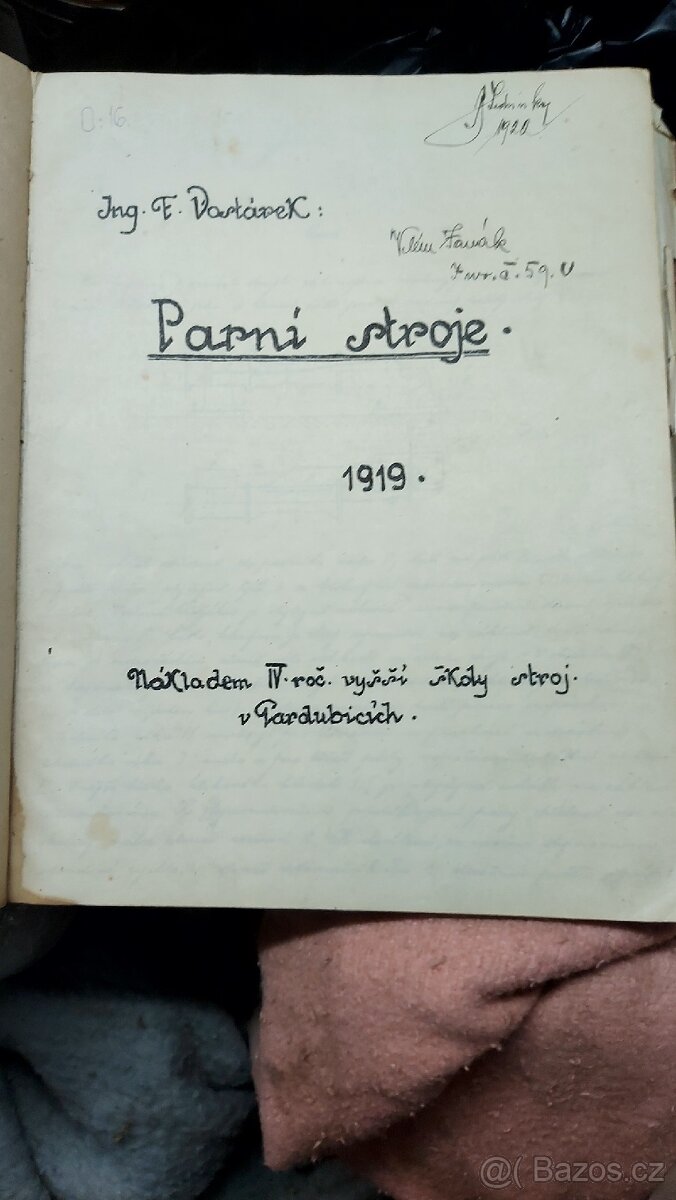 D: 16.
1920
Ing. F. Dostárek:
Parní stroje.
1919.
Nákladem IV. roč. vyšší školy stroj.
v Pardubicích.
@( Bazoš.cz